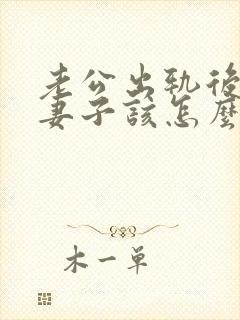 老公出軌後
妻子該怎麼
木一单